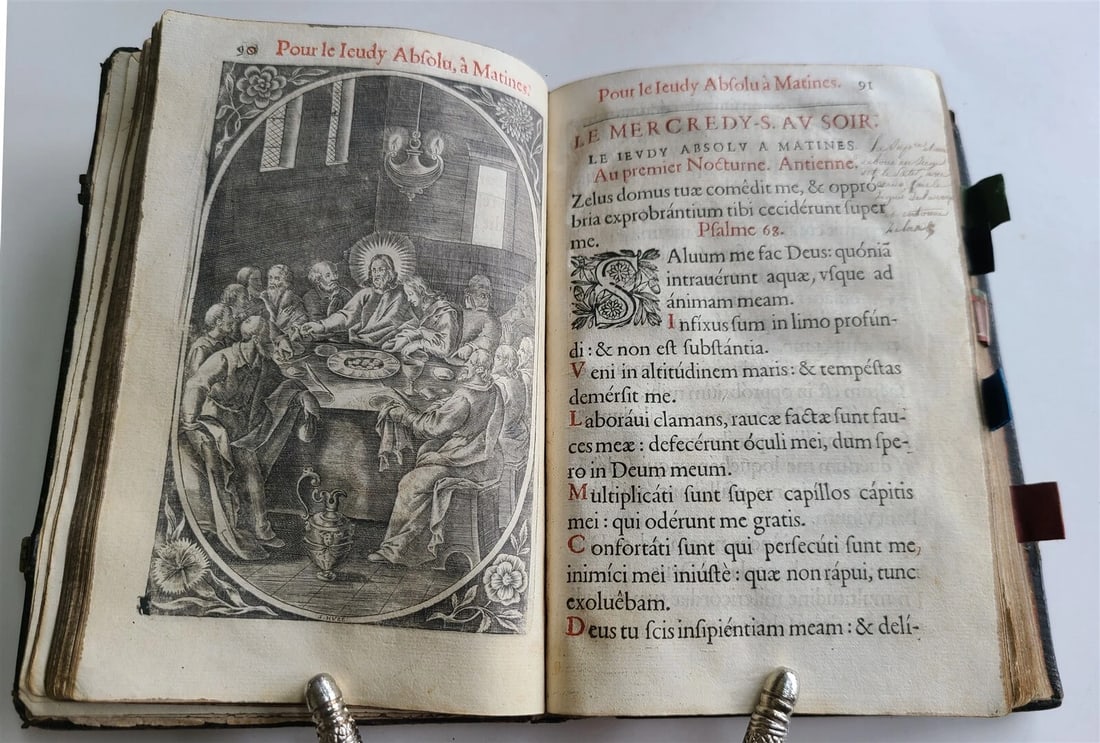 90 Pour le Ieudy Abſolu, à Matines.
Pour le Ieudy Abſolu à Matines. 91
LE MERCREDY-S. AV SOIR.
LE IEVDY ABSOLV A MATINES
Au premier Nocturne. Antienne.
Zelus domus tuæ comêdit me, & oppro
bria exprobrántium tibi cecidérunt ſuper
me.
Pſalme 68.
SAluum me fac Deus: quóniã
intrauérunt aquæ, vſque ad
ánimam meam.
Infixus ſum in limo profún-
di : & non eſt ſubſtántia.
Veni in altitúdinem maris : & tempéſtas
demérſit me.
Laboráui clamans, raucæ factæ ſunt fau-
ces meæ : defecérunt óculi mei, dum ſpe-
ro in Deum meum.
Multiplicáti ſunt ſuper capíllos cápitis
mei : qui odérunt me gratis.
Confortáti ſunt qui perſecúti ſunt me,
inimíci mei iniuſtè : quæ non rápui, tunc
exoluêbam.
Deus tu ſcis inſipiéntiam meam : & delí-